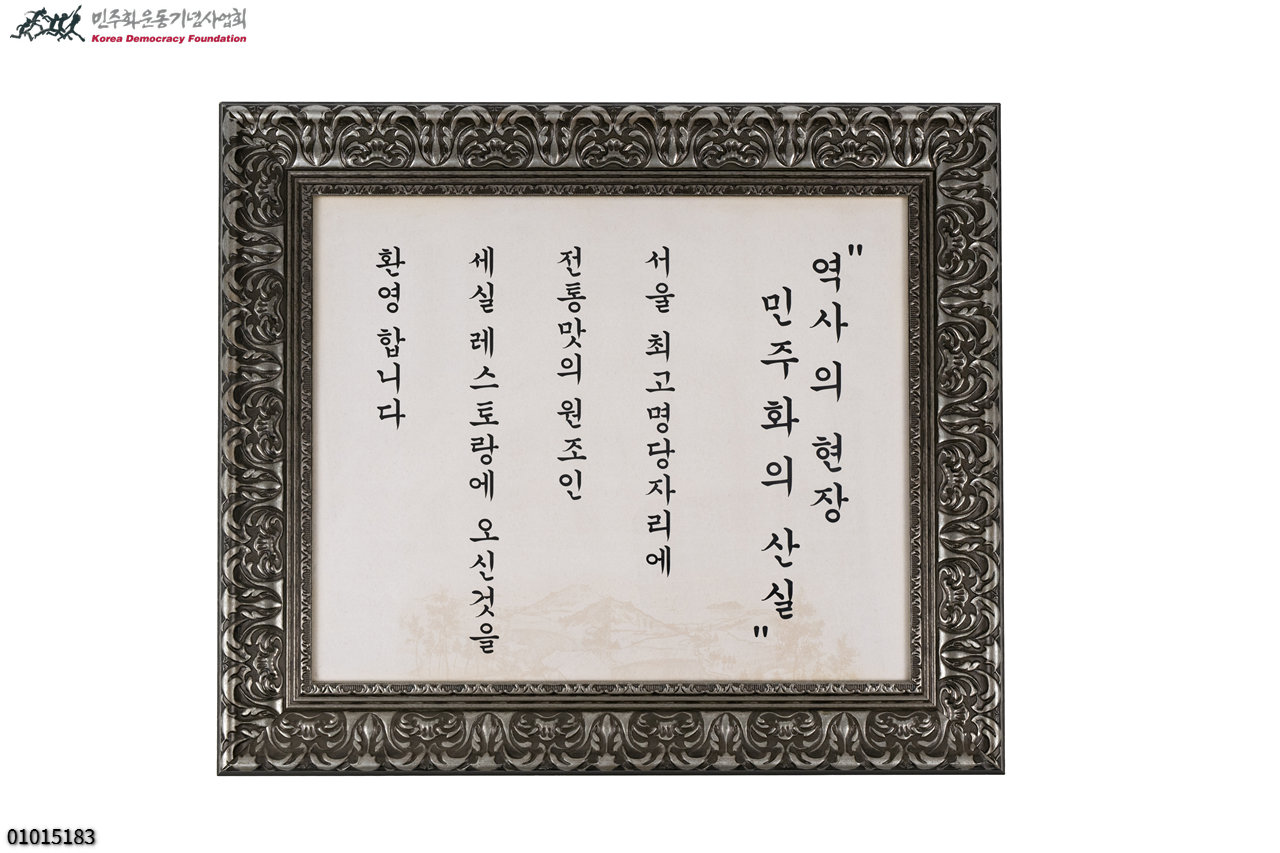 민주화운동기념사업회
Korea Democracy Foundation
"역사의 현장
민주화의 산실"
서울 최고명당자리에
전통맛의 원조인
세실 레스토랑에 오신것을
환영합니다
01015183